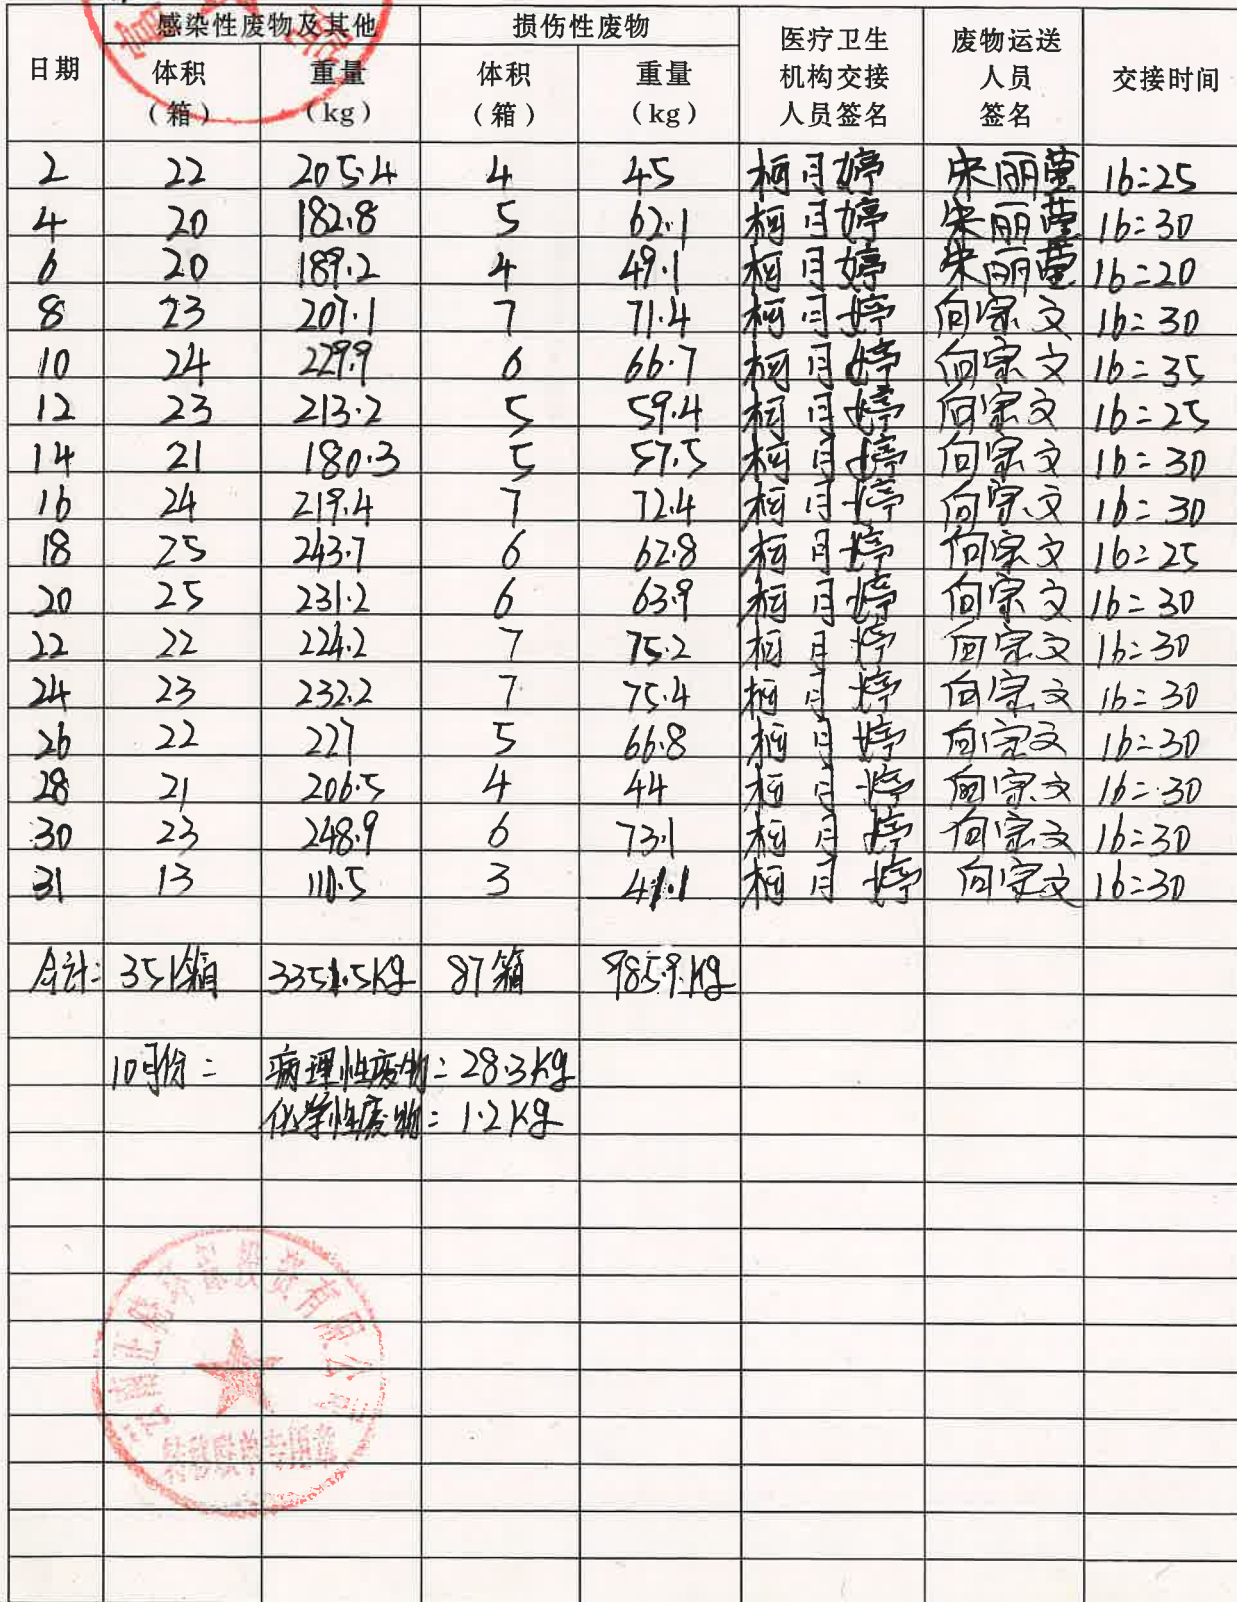 感染性废物及其他 损伤性废物
日期 体积（箱） 重量（kg） 体积（箱） 重量（kg） 医疗卫生机构交接人员签名 废物运送人员签名 交接时间
2 22 205.4 4 45 柯月婷 朱丽萱 16:25
4 20 182.8 5 62.1 柯月婷 朱丽萱 16:30
6 20 189.2 4 49.1 柯月婷 朱丽萱 16:20
8 23 207.1 7 71.4 柯月婷 向宗文 16:30
10 24 229.9 6 66.7 柯月婷 向宗文 16:35
12 23 213.2 5 59.4 柯月婷 向宗文 16:25
14 21 180.3 5 57.5 柯月婷 向宗文 16:30
16 24 219.4 7 72.4 柯月婷 向宗文 16:30
18 25 243.7 6 62.8 柯月婷 向宗文 16:25
20 25 231.2 6 63.9 柯月婷 向宗文 16:30
22 22 224.2 7 75.2 柯月婷 向宗文 16:30
24 23 232.2 7 75.4 柯月婷 向宗文 16:30
26 22 227 5 66.8 柯月婷 向宗文 16:30
28 21 206.5 4 44 柯月婷 向宗文 16:30
30 23 248.9 6 73.1 柯月婷 向宗文 16:30
31 13 110.5 3 41.1 柯月婷 向宗文 16:30
合计: 351箱 3351.5kg 87箱 985.9kg
10月份: 病理性废物: 28.3kg
化学性废物: 1.2kg
环保投资有限公司
转移联单专用章